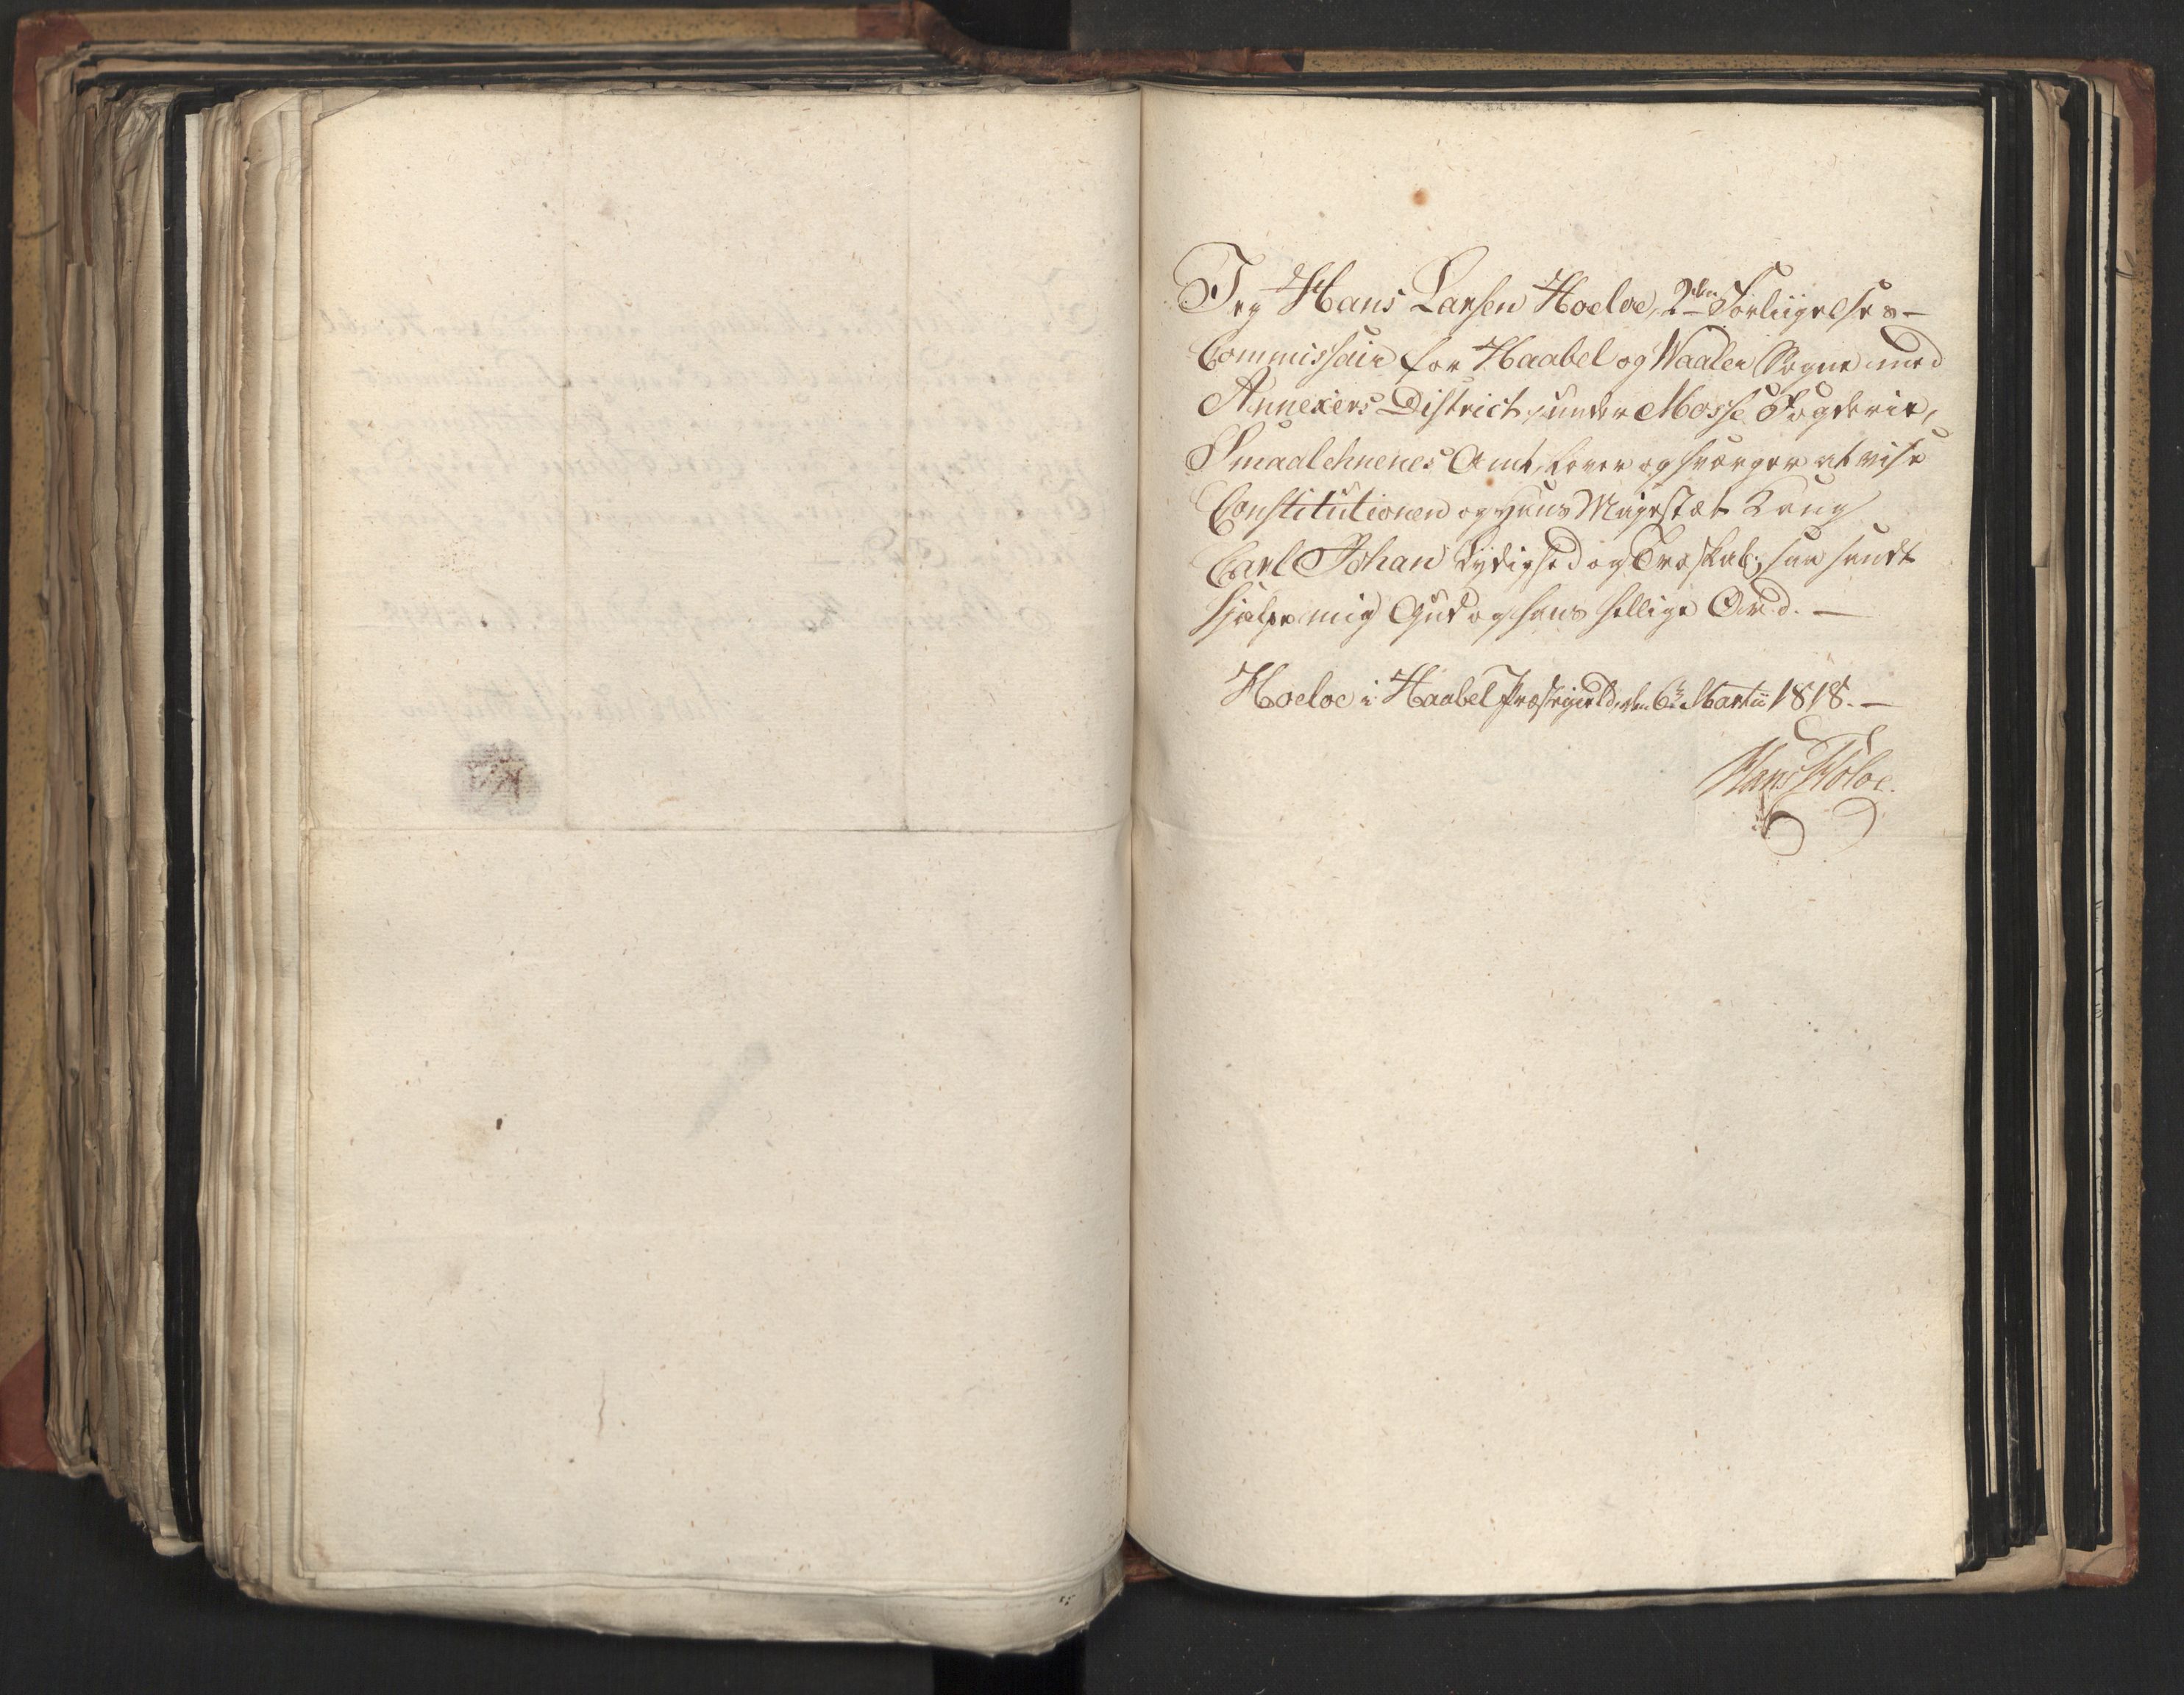 Jeg Hans Larsen Hoeloe, 2den Forliigelses-
Commissair for Haabel og Waaler Sogne med
Annexers District, under Mosse Fogderie,
Smaalehnenes Amt, lover og sværger at vise
Constitutionen og Hans Majestæt Kong
Carl Johan Lydighed og Troskab; saa sandt
hjelpe mig Gud og hans hellige Ord. —
Hoeloe i Haabel Præstegield, den 6te Martii 1818. —
Hans Holoe.